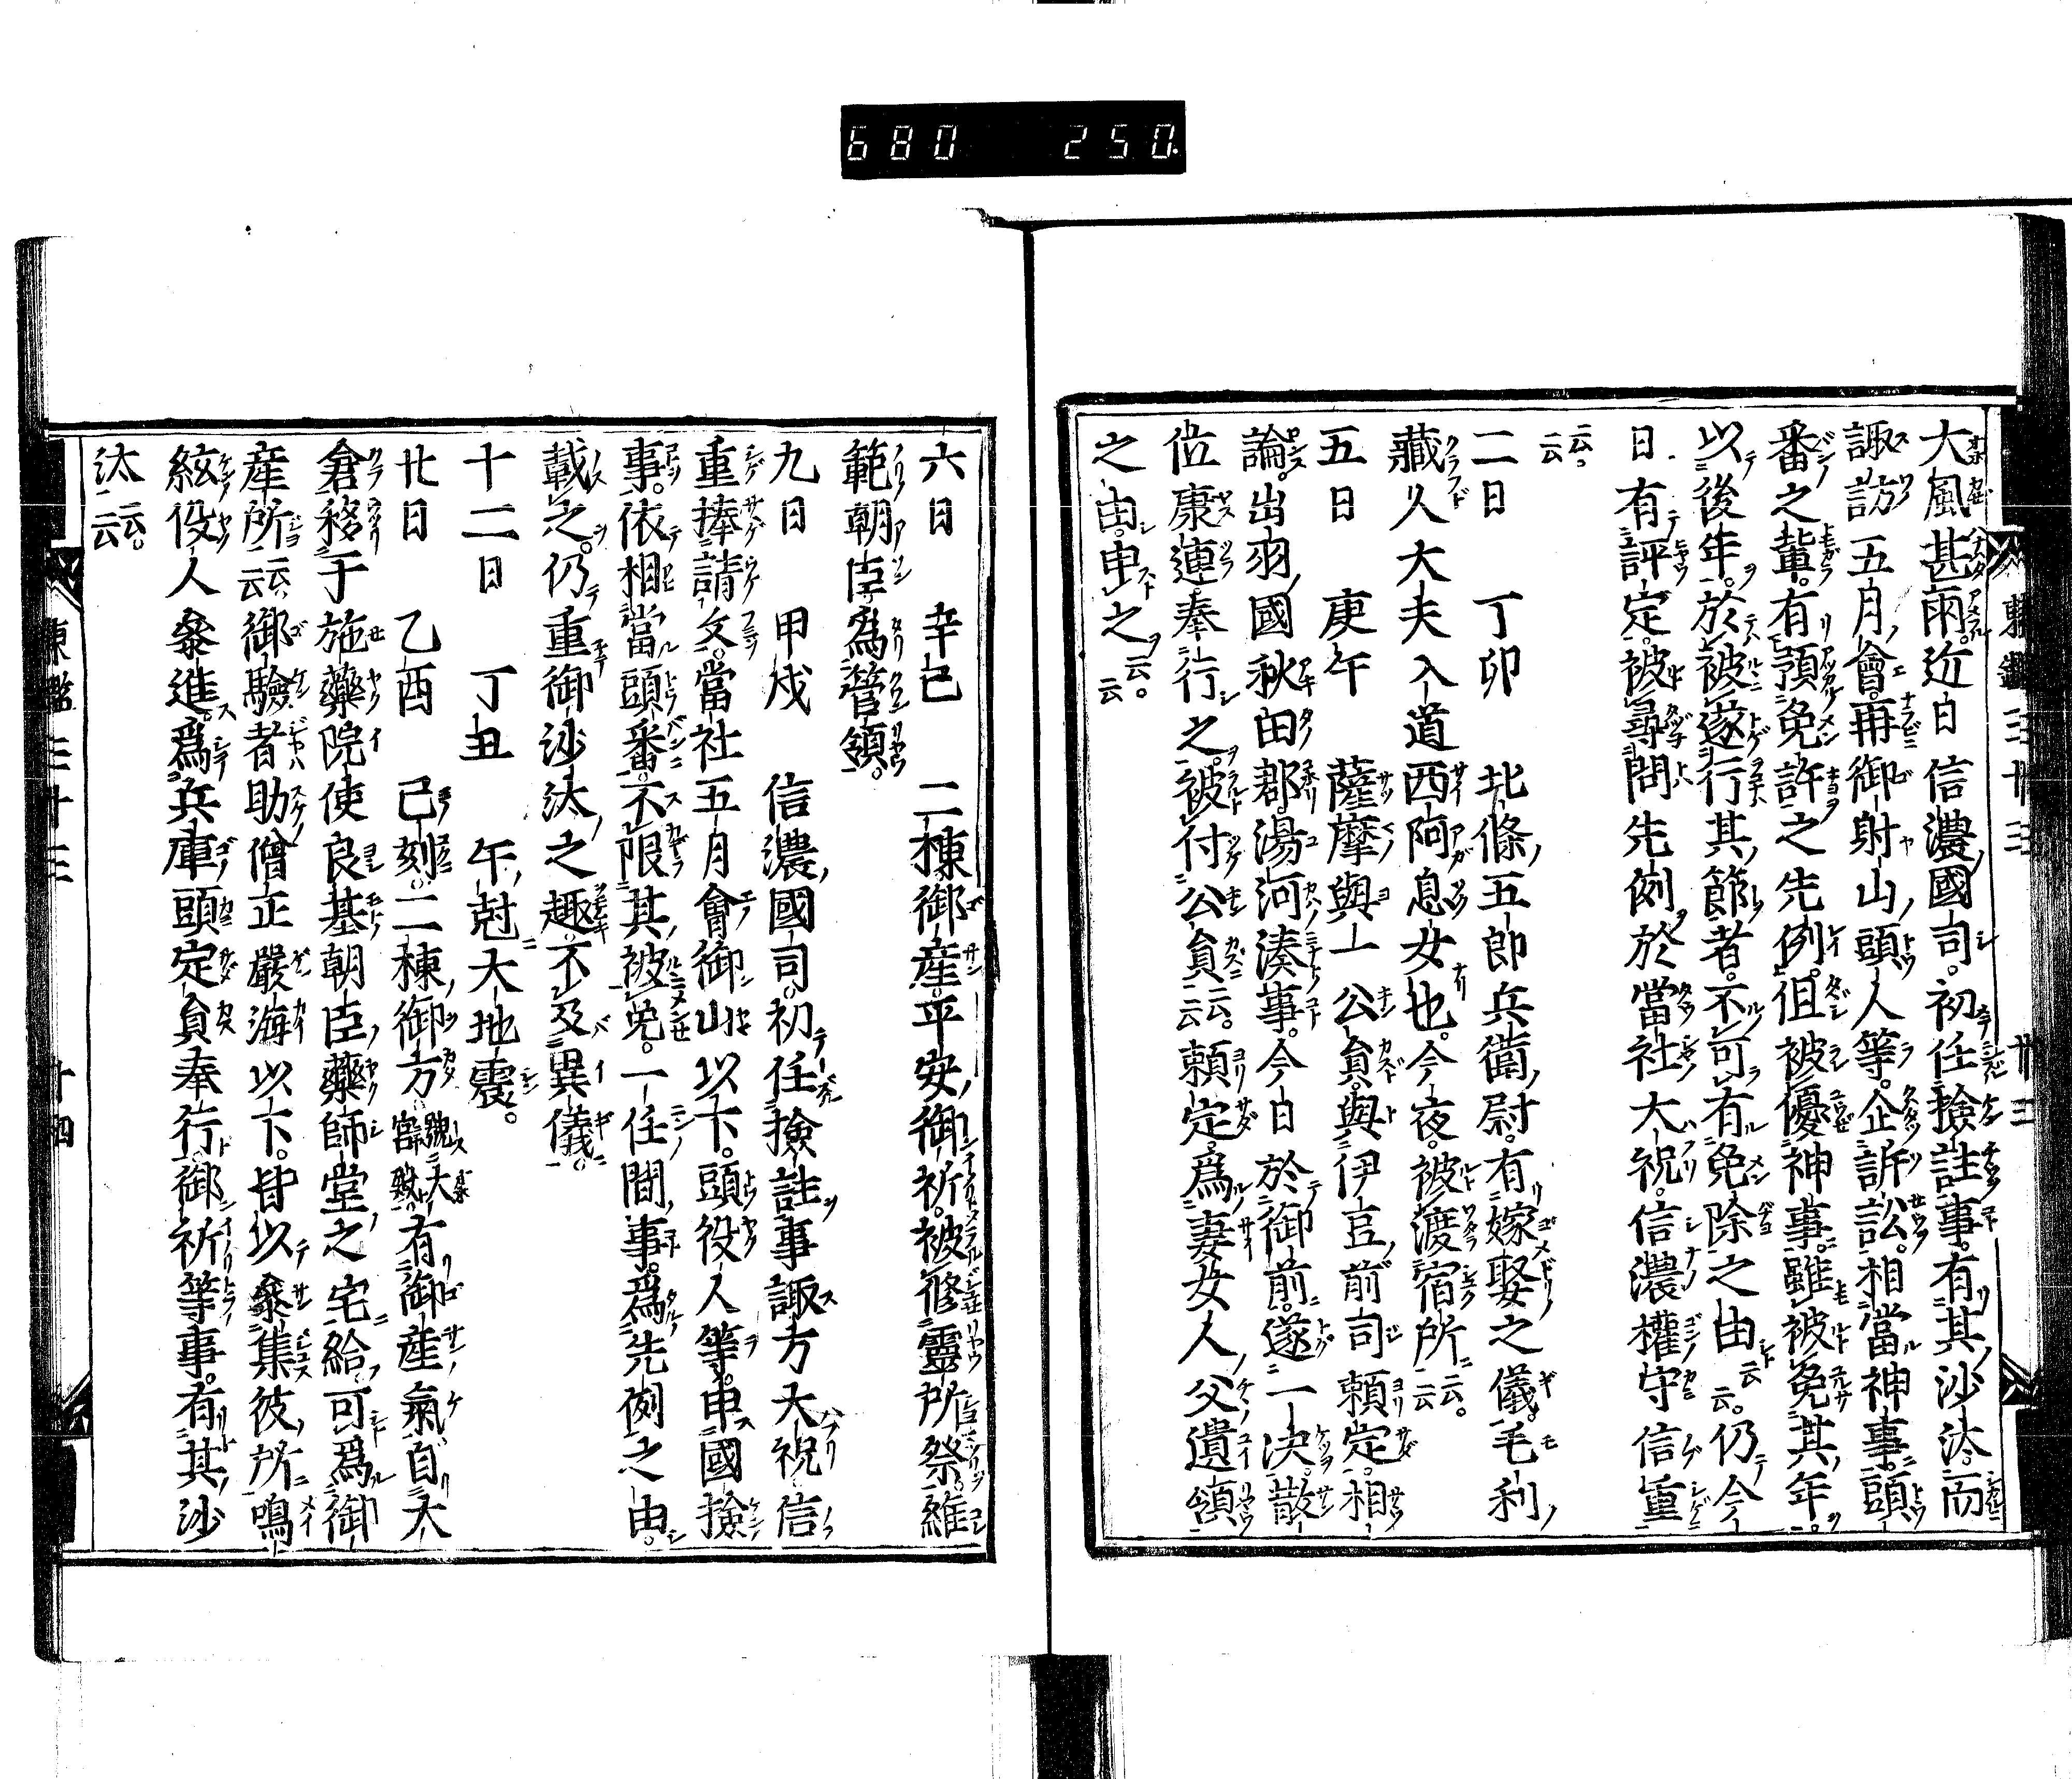 680 250
大風甚雨近日信濃國司初任撿註事有其沙汰而
諏訪五月會再御射山頭人等企訴訟相當神事頭
番之輩有預免許之先例但被優神事雖被免其年
以後年於被遂行其節者不可有免除之由云云仍今
日有評定被尋問先例於當社大祝信濃權守信重
云云
二日 丁卯 北條五郎兵衛尉有嫁娶之儀毛利
藏人大夫入道西阿息女也今夜被渡宿所云云
五日 庚午 薩摩與一公員與伊豆前司頼定相
論出羽國秋田郡湯河湊事今日於御前遂一决散
位康連奉行之被付公員云云頼定為妻女人父遺領
之由申之云云
東鑑三十三 廿三
六日 辛巳 二棟御産平安御祈被修靈所祭維
範朝臣為管領
九日 甲戌 信濃國司初任撿註事諏方大祝信
重捧請文當社五月會御山以下頭役人等申國撿
事依相當頭番不限其被免一任間事為先例之由
載之仍重御沙汰之趣不及異儀
十二日 丁丑 午尅大地震
廿日 乙酉 巳刻二棟御方號大宮殿有御産氣自大
倉移于施藥院使良基朝臣藥師堂之宅給可為御
産所云云御驗者助僧正嚴海以下皆以參集彼所鳴
絃役人參進為兵庫頭定員奉行御祈等事有其沙
汰云云
東鑑三十三 十四